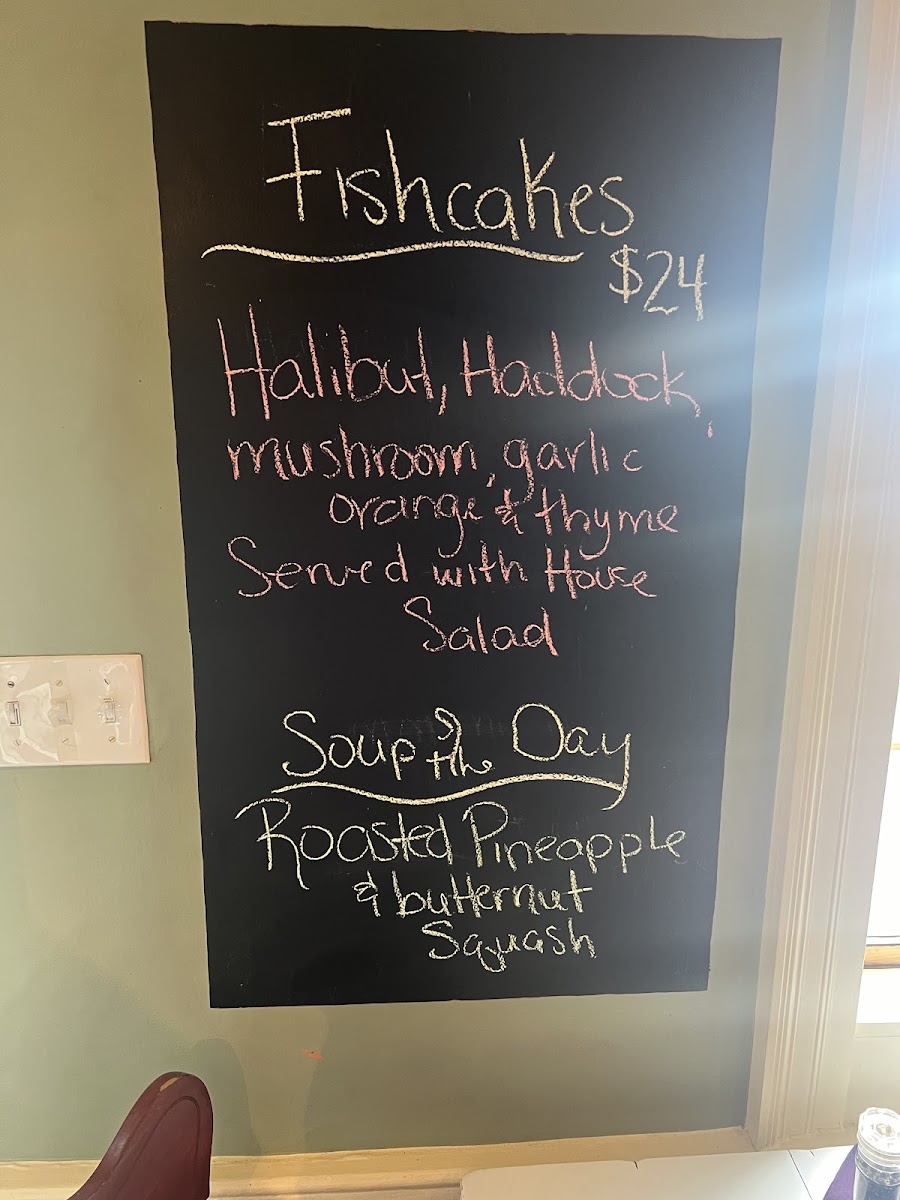 Fishcakes
$24
Halibut, Haddock,
mushroom, garlic
orange & thyme
Served with House
Salad
Soup of the Day
Roasted Pineapple
& butternut
Squash